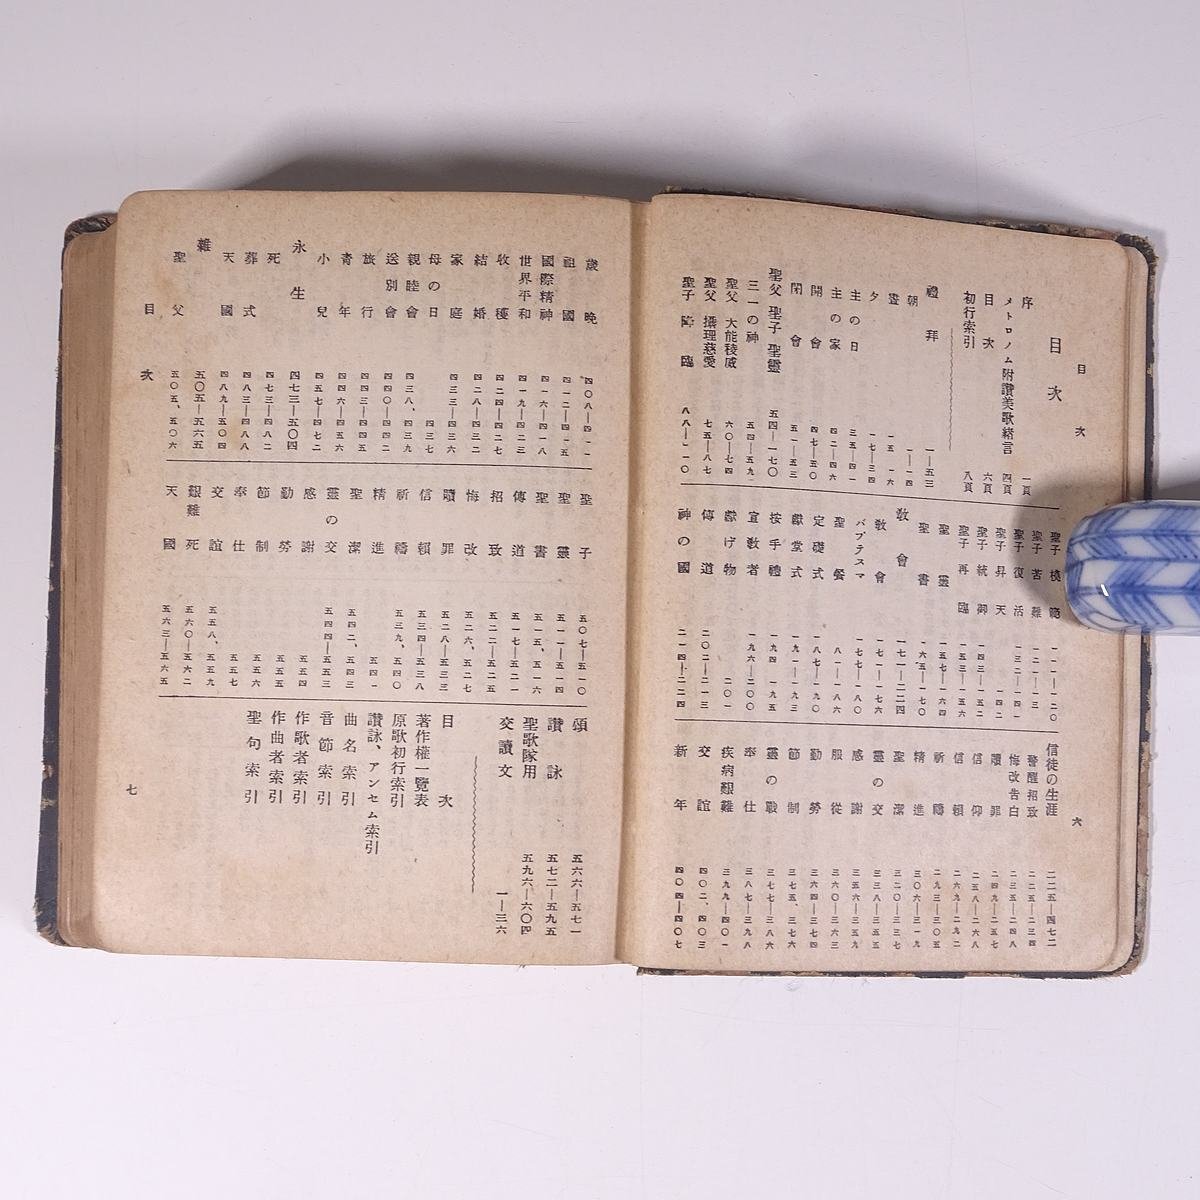 目次
目次
序 一頁
メトロノム附讃美歌緒言 四頁
目次 六頁
初行索引 八頁
禮拜 一—五三
朝 一—一四
靈 一五—一六
夕 一七—三四
主の日 三五—四一
主の家 四二—四六
開會 四七—五〇
閉會 五一—五三
聖父 聖子 聖靈 五四—一七〇
三一の神 五四—五九
聖父 大能稜威 六〇—七四
聖父 攝理慈愛 七五—八七
聖子 降臨 八八—一一〇
聖子 模範 一一一—一二〇
聖子 苦難 一二一—一三一
聖子 復活 一三二—一四一
聖子 昇天 一四二
聖子 統御 一四三—一五二
聖子 再臨 一五三—一五六
聖靈 一五七—一六四
聖書 一六五—一七〇
敎會 一七一—二二四
敎會 一七一—一七六
バプテスマ 一七七—一八〇
聖餐 一八一—一八六
定礎式 一八七—一九〇
獻堂式 一九一—一九三
按手禮 一九四、一九五
宣敎者 一九六—二〇〇
獻げ物 二〇一
傳道 二〇二—二一三
神の國 二一四—二二四
信徒の生涯 二二五—四七二
警醒招致 二二五—二三四
悔改告白 二三五—二四八
贖罪 二四九—二五七
信仰 二五八—二六八
信賴 二六九—二九二
祈禱 二九三—三〇五
精進 三〇六—三一九
聖潔 三二〇—三三七
靈の交 三三八—三五五
感謝 三五六—三五九
服從 三六〇—三六三
勤勞 三六四—三七四
節制 三七五、三七六
靈の戰 三七七—三八六
奉仕 三八七—三九八
疾病艱難 三九九—四〇一
交誼 四〇二、四〇三
新年 四〇四—四〇七
六
歲晩 四〇八—四一一
祖國 四一二—四一五
國際精神 四一六—四一八
世界平和 四一九—四二三
收穫 四二四—四二七
結婚 四二八—四三二
家庭 四三三—四三六
母の日 四三七
親睦會 四三八、四三九
送別會 四四〇—四四二
旅行 四四三—四四五
靑年 四四六—四五六
小兒 四五七—四七二
永生 四七三—五〇四
死 四七三—四八二
葬式 四八三—四八八
天國 四八九—五〇四
雜 五〇五—五六五
聖父 五〇五、五〇六
聖子 五〇七—五一〇
聖靈 五一一—五一四
聖書 五一五、五一六
傳道 五一七—五二一
招致 五二二—五二五
悔改 五二六、五二七
贖罪 五二八—五三三
信賴 五三四—五三八
祈禱 五三九、五四〇
精進 五四一
聖潔 五四二、五四三
靈の交 五四四—五五三
感謝 五五四
勤勞 五五五
節制 五五六
奉仕 五五七
交誼 五五八、五五九
艱難死 五六〇—五六二
天國 五六三—五六五
頌 五六六—五七一
讃詠 五七二—五九五
聖歌隊用 五九六—六〇四
交讀文 一—三六
目次
著作權一覽表
原歌初行索引
讃詠、アンセム索引
曲名索引
音節索引
作歌者索引
作曲者索引
聖句索引
目次
七